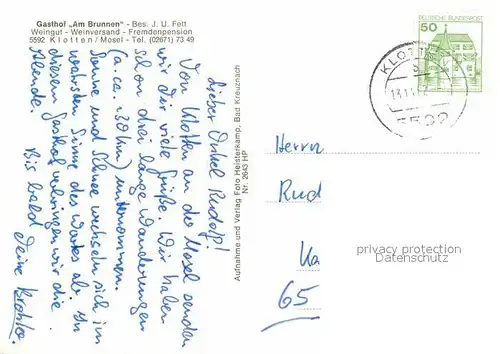 Gasthof „Am Brunnen" - Bes. J. U. Fett
Weingut - Weinversand - Fremdenpension
5592 Klotten/Mosel - Tel. (02671) 73 49
Lieber Onkel Rudolf!
Von Klotten an der Mosel senden
wir Dir viele Grüße. Wir haben
schon drei lange Wanderungen
(a. ca. 30 km) unternommen.
Sonne und Schnee wechseln sich im
wahrsten Sinne des Wortes ab. In
diesem Gasthof verbringen wir die
Abende.
Bis bald Deine
Aufnahme und Verlag Foto Heisterkamp, Bad Kreuznach
Nr. 2643 HP
DEUTSCHE BUNDESPOST
50
KLOTTEN
5592
Herrn
Rud
Ka
65
privacy protection
Datenschutz